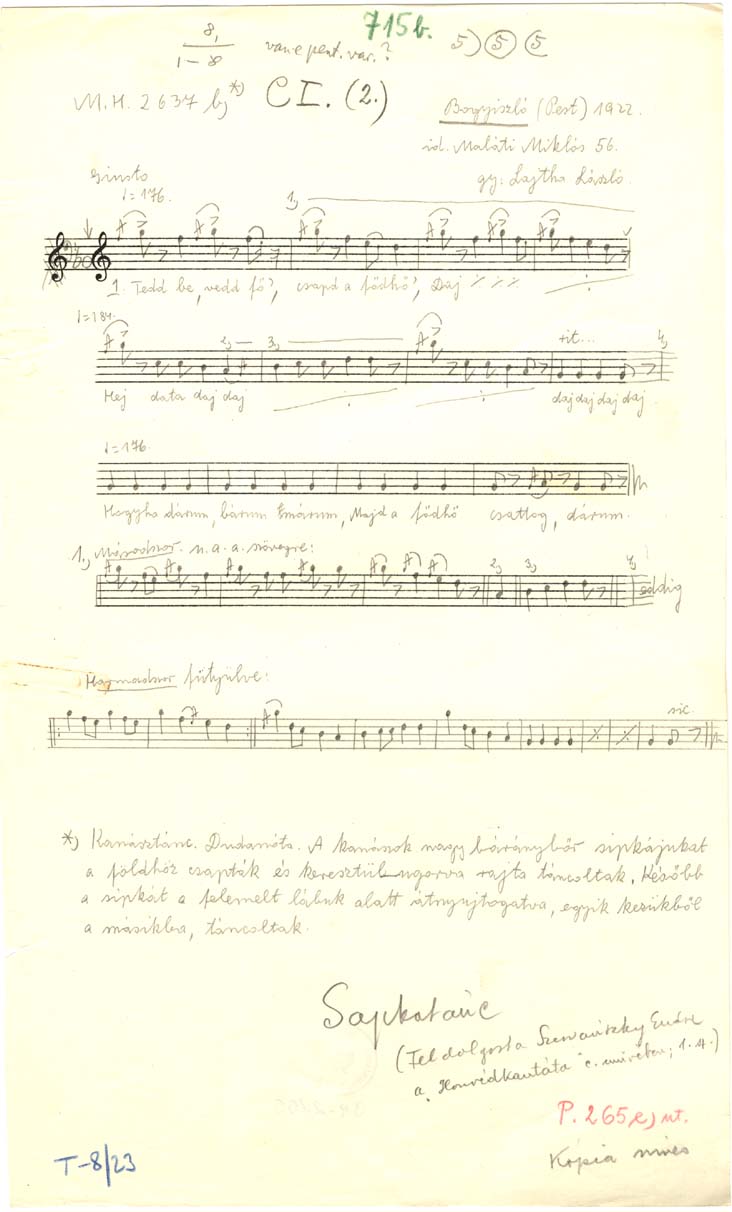 715b.
8,
1–8 van-e pent. var.? 5) (5) (5
M.H. 2637 b, *) CI. (2.) Bogyiszló (Pest) 1922.
id. Maláti Miklós 56.
gy: Lajtha László.
Giusto
♩=176.
1,
1. Tedd be, vedd fő', csapd a födhő', Daj
♩=184.
2, 3, rit... 4,
Hej data daj daj daj daj daj daj
♩=176.
Hogyha dárum, bárum Majd a födhő csattog, dárum.
1,) Másodszor u.a.a. szövegre:
2, 3, 4,
eddig
Harmadszor fütyülve:
sic
*) Kanásztánc. Dudanóta. A kanászok nagy báránybőr sipkájukat
a földhöz csapták és keresztül ugorva rajta táncoltak. Később
a sipkát a felemelt lábuk alatt átnyujtogatva, egyik kezükből
a másikba, táncoltak.
Sapkatánc
(Feldolgozta Szervánszky Endre
a „Honvédkantáta" c. művében; 1.4.)
P. 265 e, ut.
Kópia nincs
T-8/23